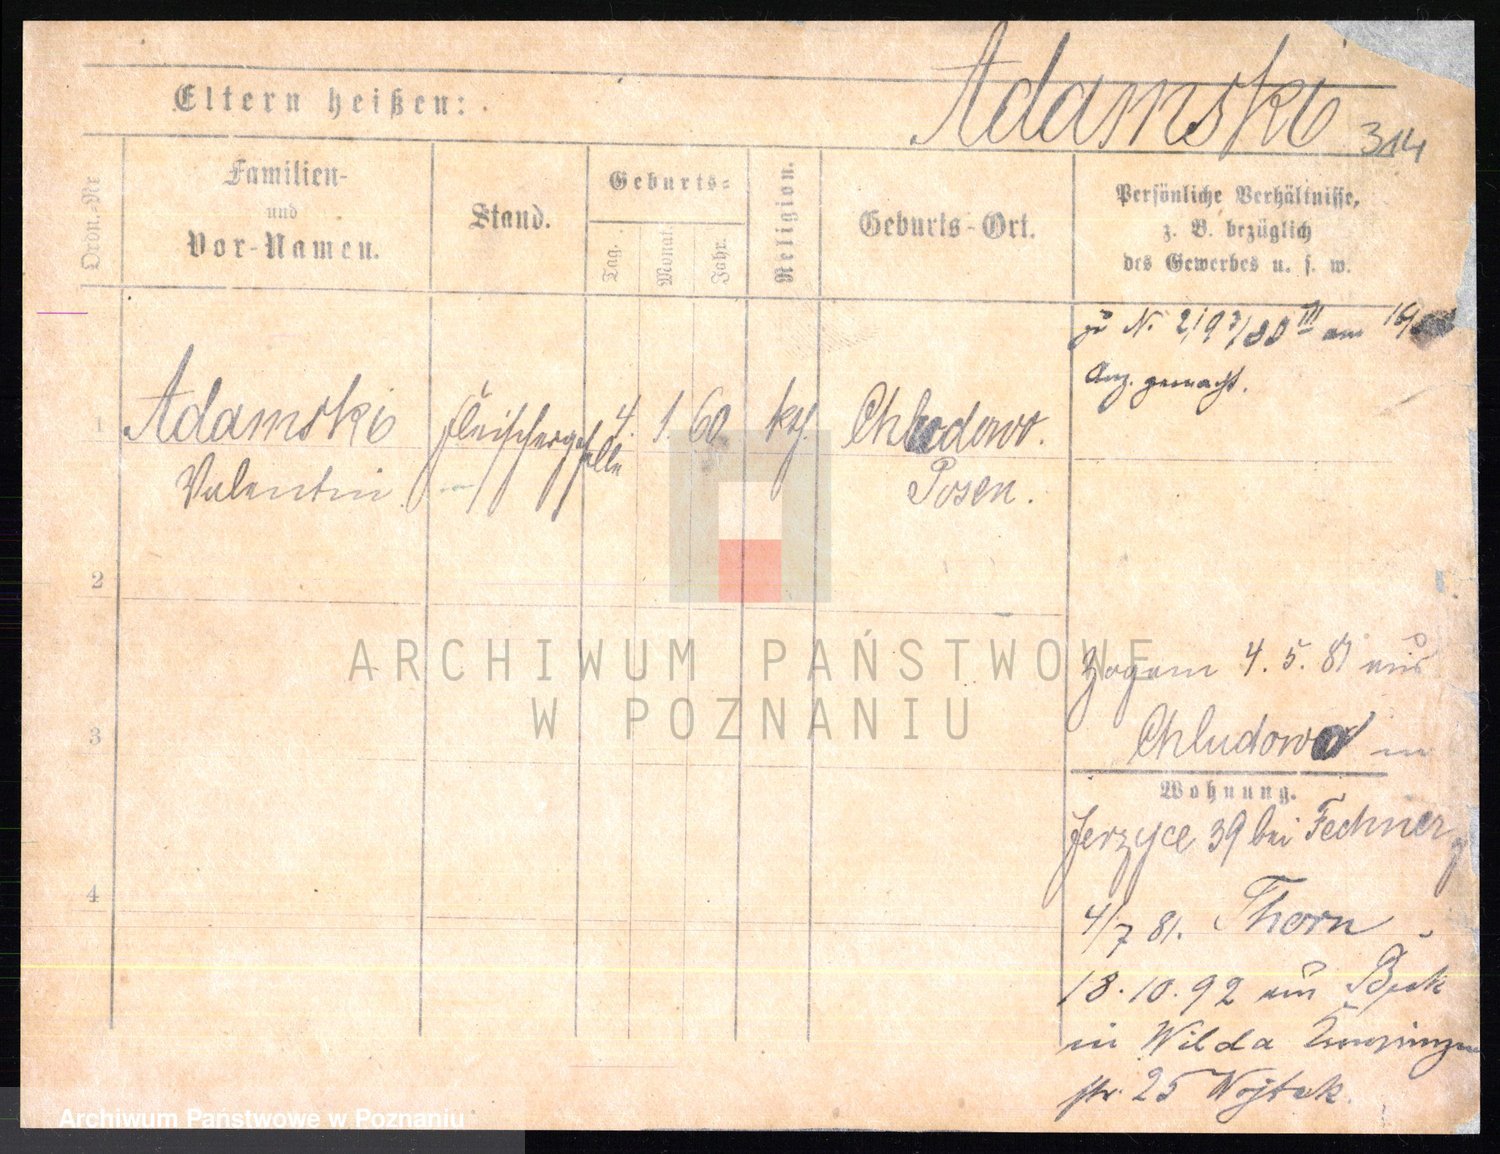 Adamski
314
Eltern heißen:
Ordn.-Nr
Familien-
und
Vor-Namen.
Stand.
Geburts-
Tag.
Monat.
Jahr.
Religion.
Geburts-Ort.
Persönliche Verhältnisse,
z. B. bezüglich
des Gewerbes u. s. w.
zu N. 2197/80 III am 16/
Anz. gemacht.
1
Adamski
Valentin
Fleischergeselle
4. 1. 60
kth.
Chludowo.
Posen.
2
ARCHIWUM PAŃSTWOWE
W POZNANIU
Zogam 4. 5. 81 aus
3
Chludowo in
Wohnung.
Jerzyce 39 bei Fechner
4
4/7 81. Thorn
18.10.92 aus
in Wilda
str. 25 Wojtek.
Archiwum Państwowe w Poznaniu